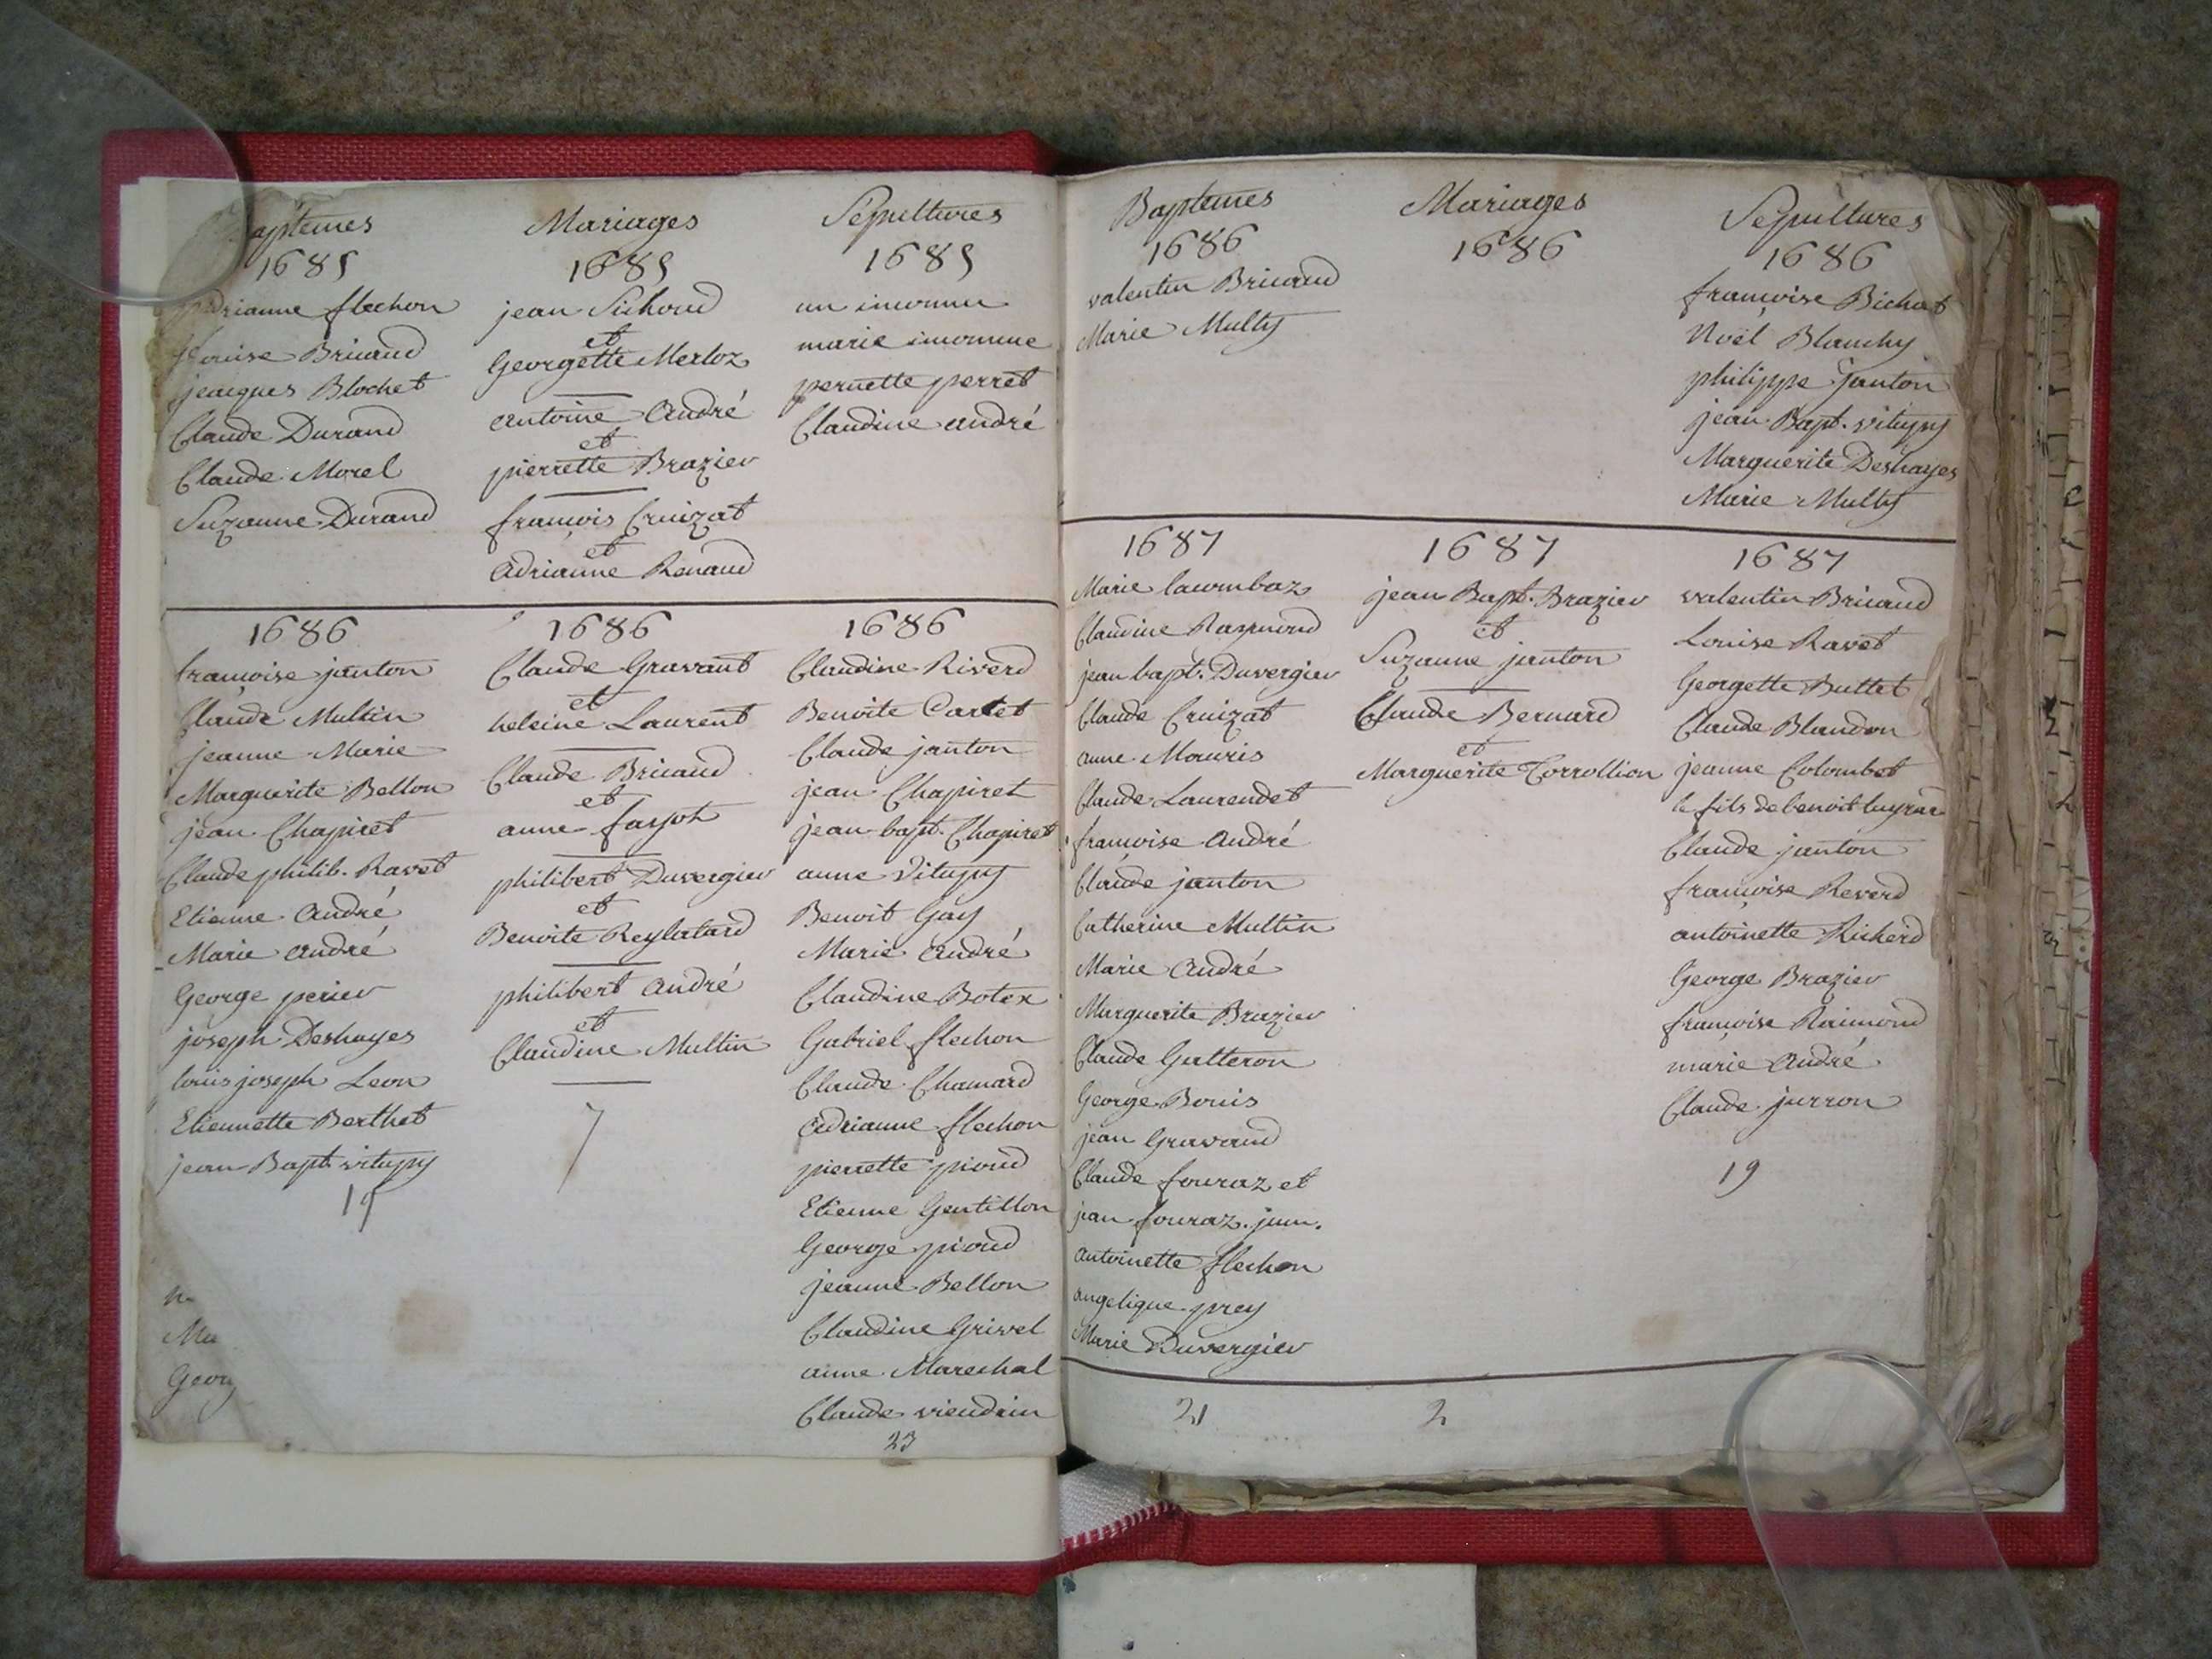 Baptemes
1685
Adrianne flechon
Louise Bricaud
jacques Blochet
Claude Durand
Claude Morel
Suzanne Durand
Mariages
1685
jean Sichoud
et
Georgette Merloz
antoine andré
et
pierrette Brazier
françois Cruizat
et
adrianne Renaud
Sépultures
1685
un inconnu
marie inconnue
pernette perret
Claudine andré
1686
françoise janton
Claude Multin
jeanne Marie
Marguerite Bellon
jean Chapiret
Claude philib. Ravet
Etienne andré
Marie andré
George perier
joseph Deshayes
louis joseph Leon
Etiennette Berthet
jean Bapt. vitupy
19
Ma
Georg
1686
Claude Gravant
et
heleine Laurent
Claude Bricaud
et
anne farjot
philibert Duvergier
et
Benoite Reylatard
philibert andré
et
Claudine Multin
7
1686
Claudine Riverd
Benoite Cartet
Claude janton
jean Chapiret
jean bapt. Chapiret
anne Vitupy
Benoit Gay
Marie andré
Claudine Botex
Gabriel flechon
Claude Chamard
adrianne flechon
pierrette pioud
Etienne Gentillon
George pioud
jeanne Bellon
Claudine Grivel
anne Marechal
Claude viendrin
23
Baptemes
1686
valentin Bricaud
Marie Multy
Mariages
1686
Sépultures
1686
françoise Bichat
Noël Blanchy
philippe janton
jean Bapt. vitupy
Marguerite Deshayes
Marie Multy
1687
Marie lacombaz
Claudine Raymond
jean bapt. Duvergier
Claude Cruizat
anne Mouris
Claude Laurendet
françoise andré
Claude janton
Catherine Multin
Marie andré
Marguerite Brazier
Claude Gutteron
George Bouis
jean Gravaud
Claude fouraz et
jean fouraz. jum.
antoinette flechon
angelique prey
Marie Duvergier
21
1687
jean Bapt. Brazier
et
Suzanne janton
Claude Bernard
et
Marguerite Torrollion
2
1687
valentin Bricaud
Louise Ravet
Georgette Buttet
Claude Blandon
jeanne Colombet
le fils de benoit
Claude janton
françoise Reverd
antoinette Richerd
George Brazier
françoise Raimond
marie andré
Claude jurron
19